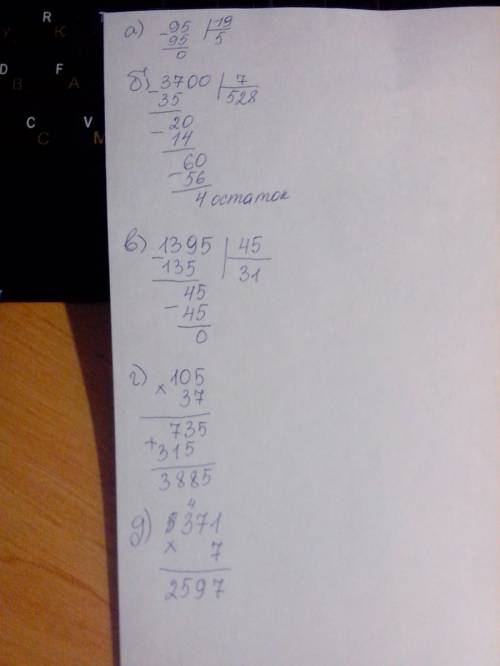 R
K
D F
B A
C V
C M
а) 95 | 19
- 95 5
0
б) 3700 | 7
- 35 528
20
- 14
60
- 56
4 остаток
в) 1395 | 45
- 135 31
45
- 45
0
г) 105
× 37
735
+ 315
3885
4
д) 371
× 7
2597